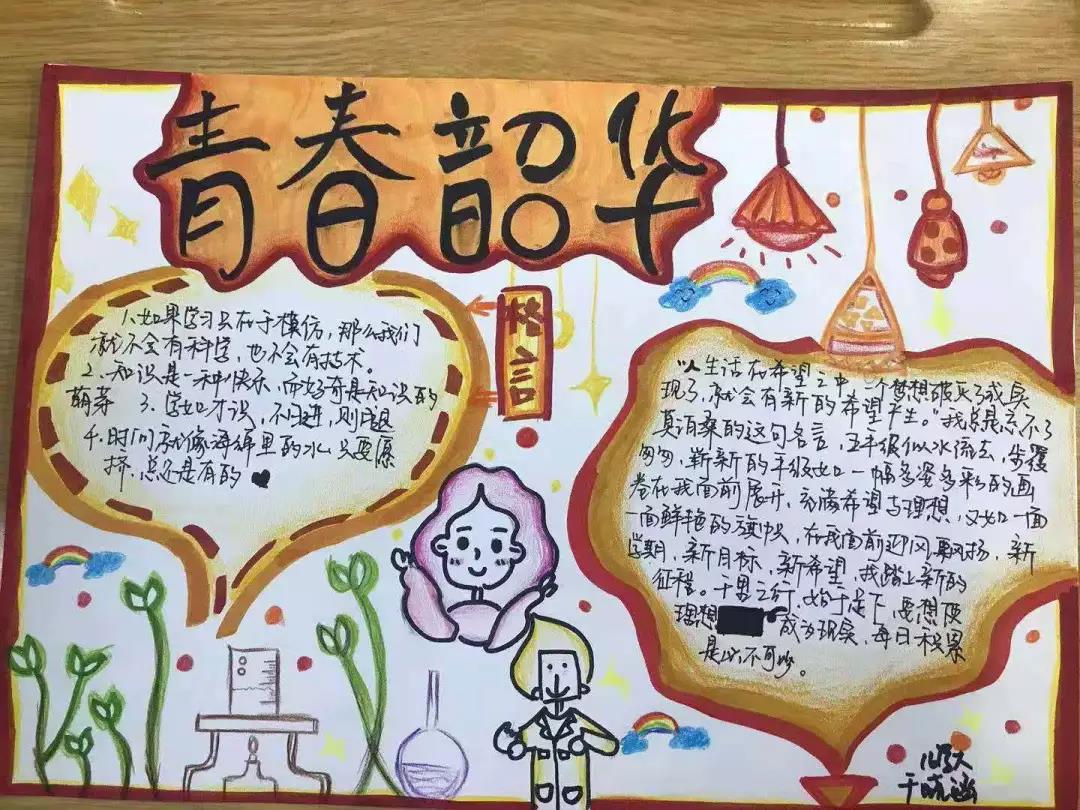 青春韶华
格言
1、如果学习只在于模仿，那么我们
就不会有科学，也不会有技术。
2、知识是一种快乐，而好奇是知识的
萌芽 3、学如才识，不日进，则日退
4、时间就像海绵里的水只要愿
挤，总还是有的
“人生活在希望之中，一个梦想破灭了或实
现了，就会有新的希望产生。”我总是忘不了
莫泊桑的这句名言，五年很似水流去，步履
匆匆，崭新的年级如一幅多姿多彩的画
卷在我面前展开，充满希望与理想，又如一面
一面鲜艳的旗帜，在我面前迎风飘扬，新
学期，新目标，新希望，我踏上新的
征程。千里之行，始于足下，要想使
理想 成为现实，每日积累
是必不可少。